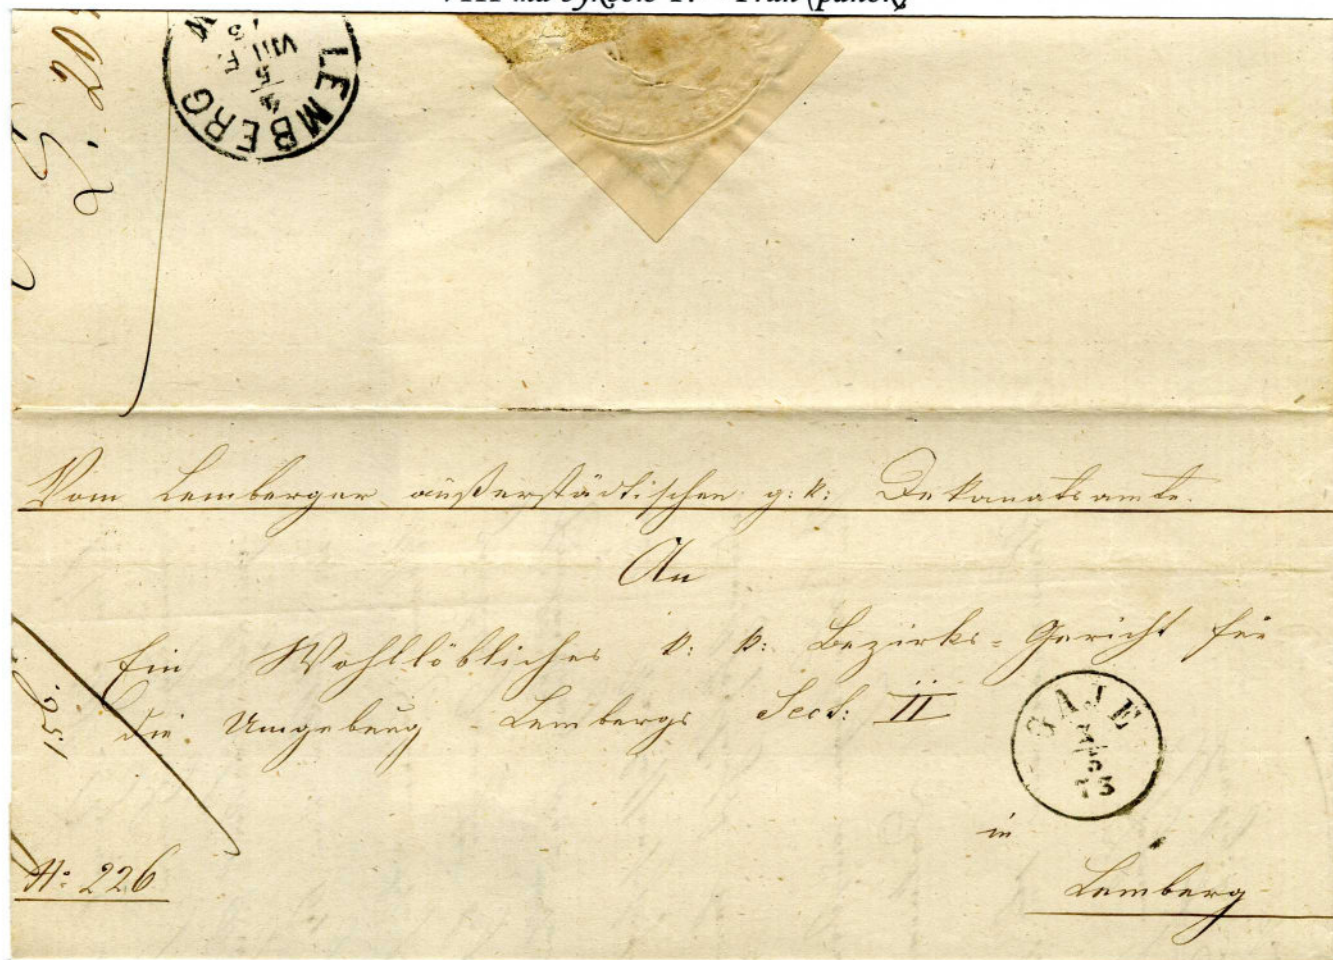 LEMBERG
5
VIII F.
73
Vom Lemberger außerstädtischen g: k: Dekanatsamte.
An
Ein Wohllöbliches k: k: Bezirks-Gericht für
die Umgebung Lembergs Sect: II
GAJE
5
73
in
Lemberg
N: 226